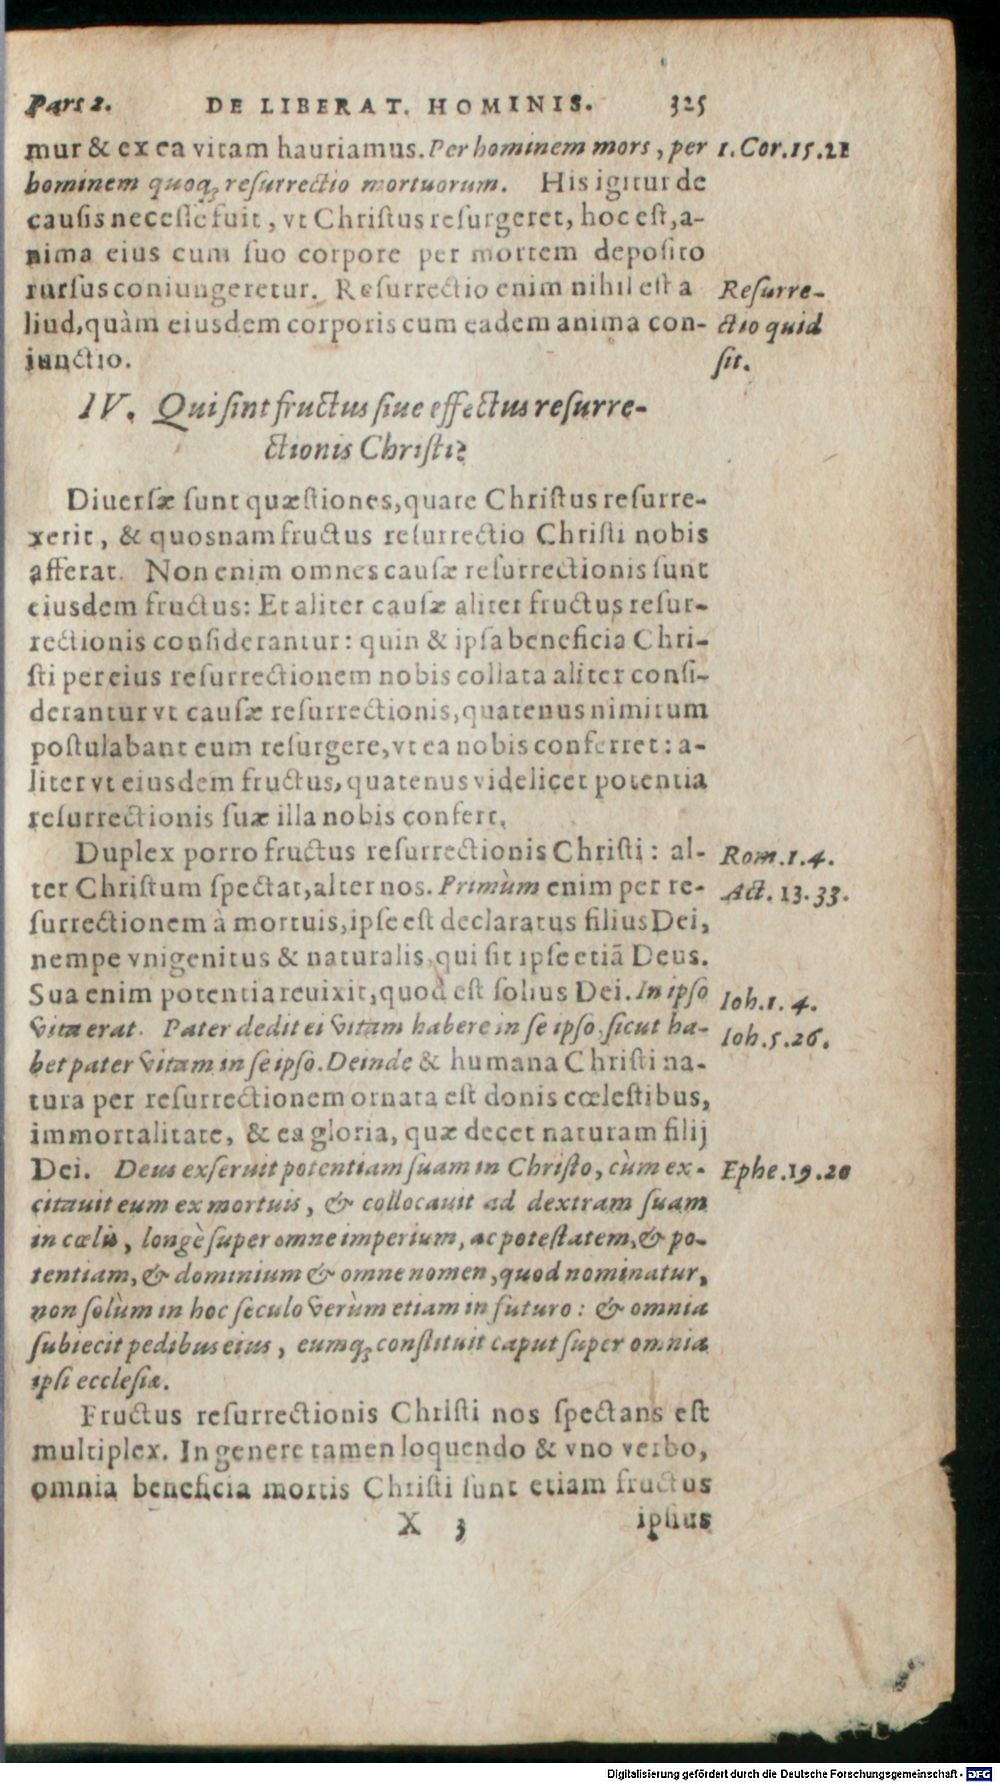 Pars 2. DE LIBERAT. HOMINIS. 325
mur & ex ea vitam hauriamus. Per hominem mors, per 1. Cor. 15. 21
hominem quoq; resurrectio mortuorum. His igitur de
causis necesse fuit, vt Christus resurgeret, hoc est, a-
nima eius cum suo corpore per mortem deposito
rursus coniungeretur. Resurrectio enim nihil est a Resurre-
liud, quàm eiusdem corporis cum eadem anima con- ctio quid
iunctio. sit.
IV. Qui sint fructus siue effectus resurre-
ctionis Christi?
Diuersæ sunt quæstiones, quare Christus resurre-
xerit, & quosnam fructus resurrectio Christi nobis
afferat. Non enim omnes causæ resurrectionis sunt
eiusdem fructus: Et aliter causæ aliter fructus resur-
rectionis considerantur: quin & ipsa beneficia Chri-
sti per eius resurrectionem nobis collata aliter consi-
derantur vt causæ resurrectionis, quatenus nimirum
postulabant eum resurgere, vt ea nobis conferret: a-
liter vt eiusdem fructus, quatenus videlicet potentia
resurrectionis suæ illa nobis confert.
Duplex porro fructus resurrectionis Christi: al- Rom. 1. 4.
ter Christum spectat, alter nos. Primùm enim per re- Act. 13. 33.
surrectionem à mortuis, ipse est declaratus filius Dei,
nempe vnigenitus & naturalis, qui sit ipse etiã Deus.
Sua enim potentia reuixit, quod est solius Dei. In ipso Ioh. 1. 4.
vita erat. Pater dedit ei vitam habere in se ipso, sicut ha- Ioh. 5. 26.
bet pater vitam in se ipso. Deinde & humana Christi na-
tura per resurrectionem ornata est donis cœlestibus,
immortalitate, & ea gloria, quæ decet naturam filij
Dei. Deus exseruit potentiam suam in Christo, cùm ex- Ephe. 19. 20
citauit eum ex mortuis, & collocauit ad dextram suam
in cœlis, longè super omne imperium, ac potestatem, & po-
tentiam, & dominium & omne nomen, quod nominatur,
non solùm in hoc seculo verùm etiam in futuro: & omnia
subiecit pedibus eius, eumq; constituit caput super omnia
ipsi ecclesiæ.
Fructus resurrectionis Christi nos spectans est
multiplex. In genere tamen loquendo & vno verbo,
omnia beneficia mortis Christi sunt etiam fructus
X 3 ipsius
Digitalisierung gefördert durch die Deutsche Forschungsgemeinschaft - DFG